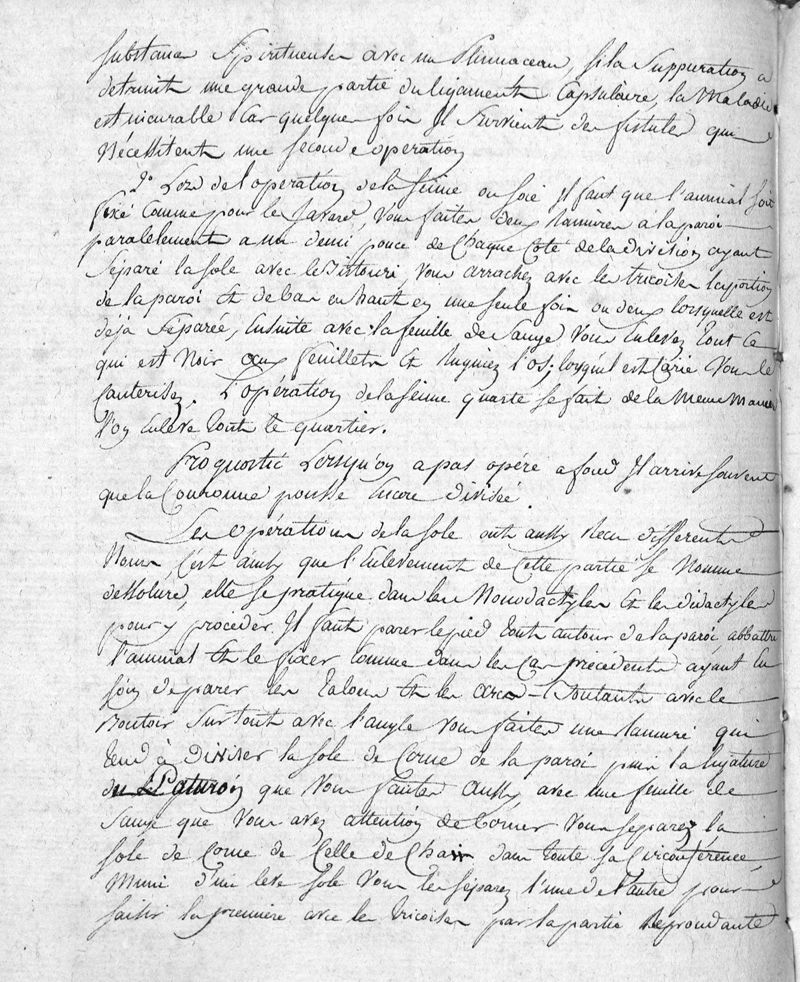 substance Spiritueuse avec un Plumaceau, si la Suppuration a
detruith une grande partie du ligament Capsulaire, la Maladie
est incurable Car quelques fois Il Survienth des fistules qui
Nécéssitenth une seconde operation
3° Lors de l'operation de la seime ou soie Il faut que l'animal soit
fixé Comme pour le Javard, Vous faites deux rainures à la paroi
paralelementh a un demi pouce de Chaque Coté de la division ayant
Séparé la sole avec le Bistouri Vous arrachez avec les tricoises la portion
de la paroi Et de bas en hauth en une seule fois ou deux lorsquelle est
déja Séparée, Ensuite avec la feuille de Sauge Vous Enlevez tout Ce
qui est Noir aux feuillets Et Ruginez l'os; lorsqu'il est Carié Vous le
Cauterisez. L'opération de la seime quarte se fait de la Meme Maniere
l'on Enleve tout le quartier.
Prognostic Lorsqu'on a pas opéré a fond Il arrive souvent
que la Couronne pousse Encore divisée
Les Opérations de la sole onth aussy Recu differents
Noms, C'est ainsy que l'Enlevement de Cette partie se Nomme
dessolure, elle se pratique dans les Monodactyles Et les didactyles
pour y procéder Il fauth parer le pied tout autour de la paroi, abbattre
l'animal Et le fixer Comme dans les Cas précédents ayant Eu
soin de parer les talons Et les arcs-boutants avec le
Boutoir Surtout avec l'angle Vous faites une rainure qui
tend à Diviser la sole de Corne de la paroi puis la ligature
du Paturon que Vous faites Aussy avec une feuille de
Sauge que Vous avez attention de borner Vous séparez la
sole de Corne de Celle de Chair dans toute sa Circonférence
Muni d'un leve sole Vous les séparez l'une de l'autre pour
saisir la premiere avec les tricoises par la partie Repondante